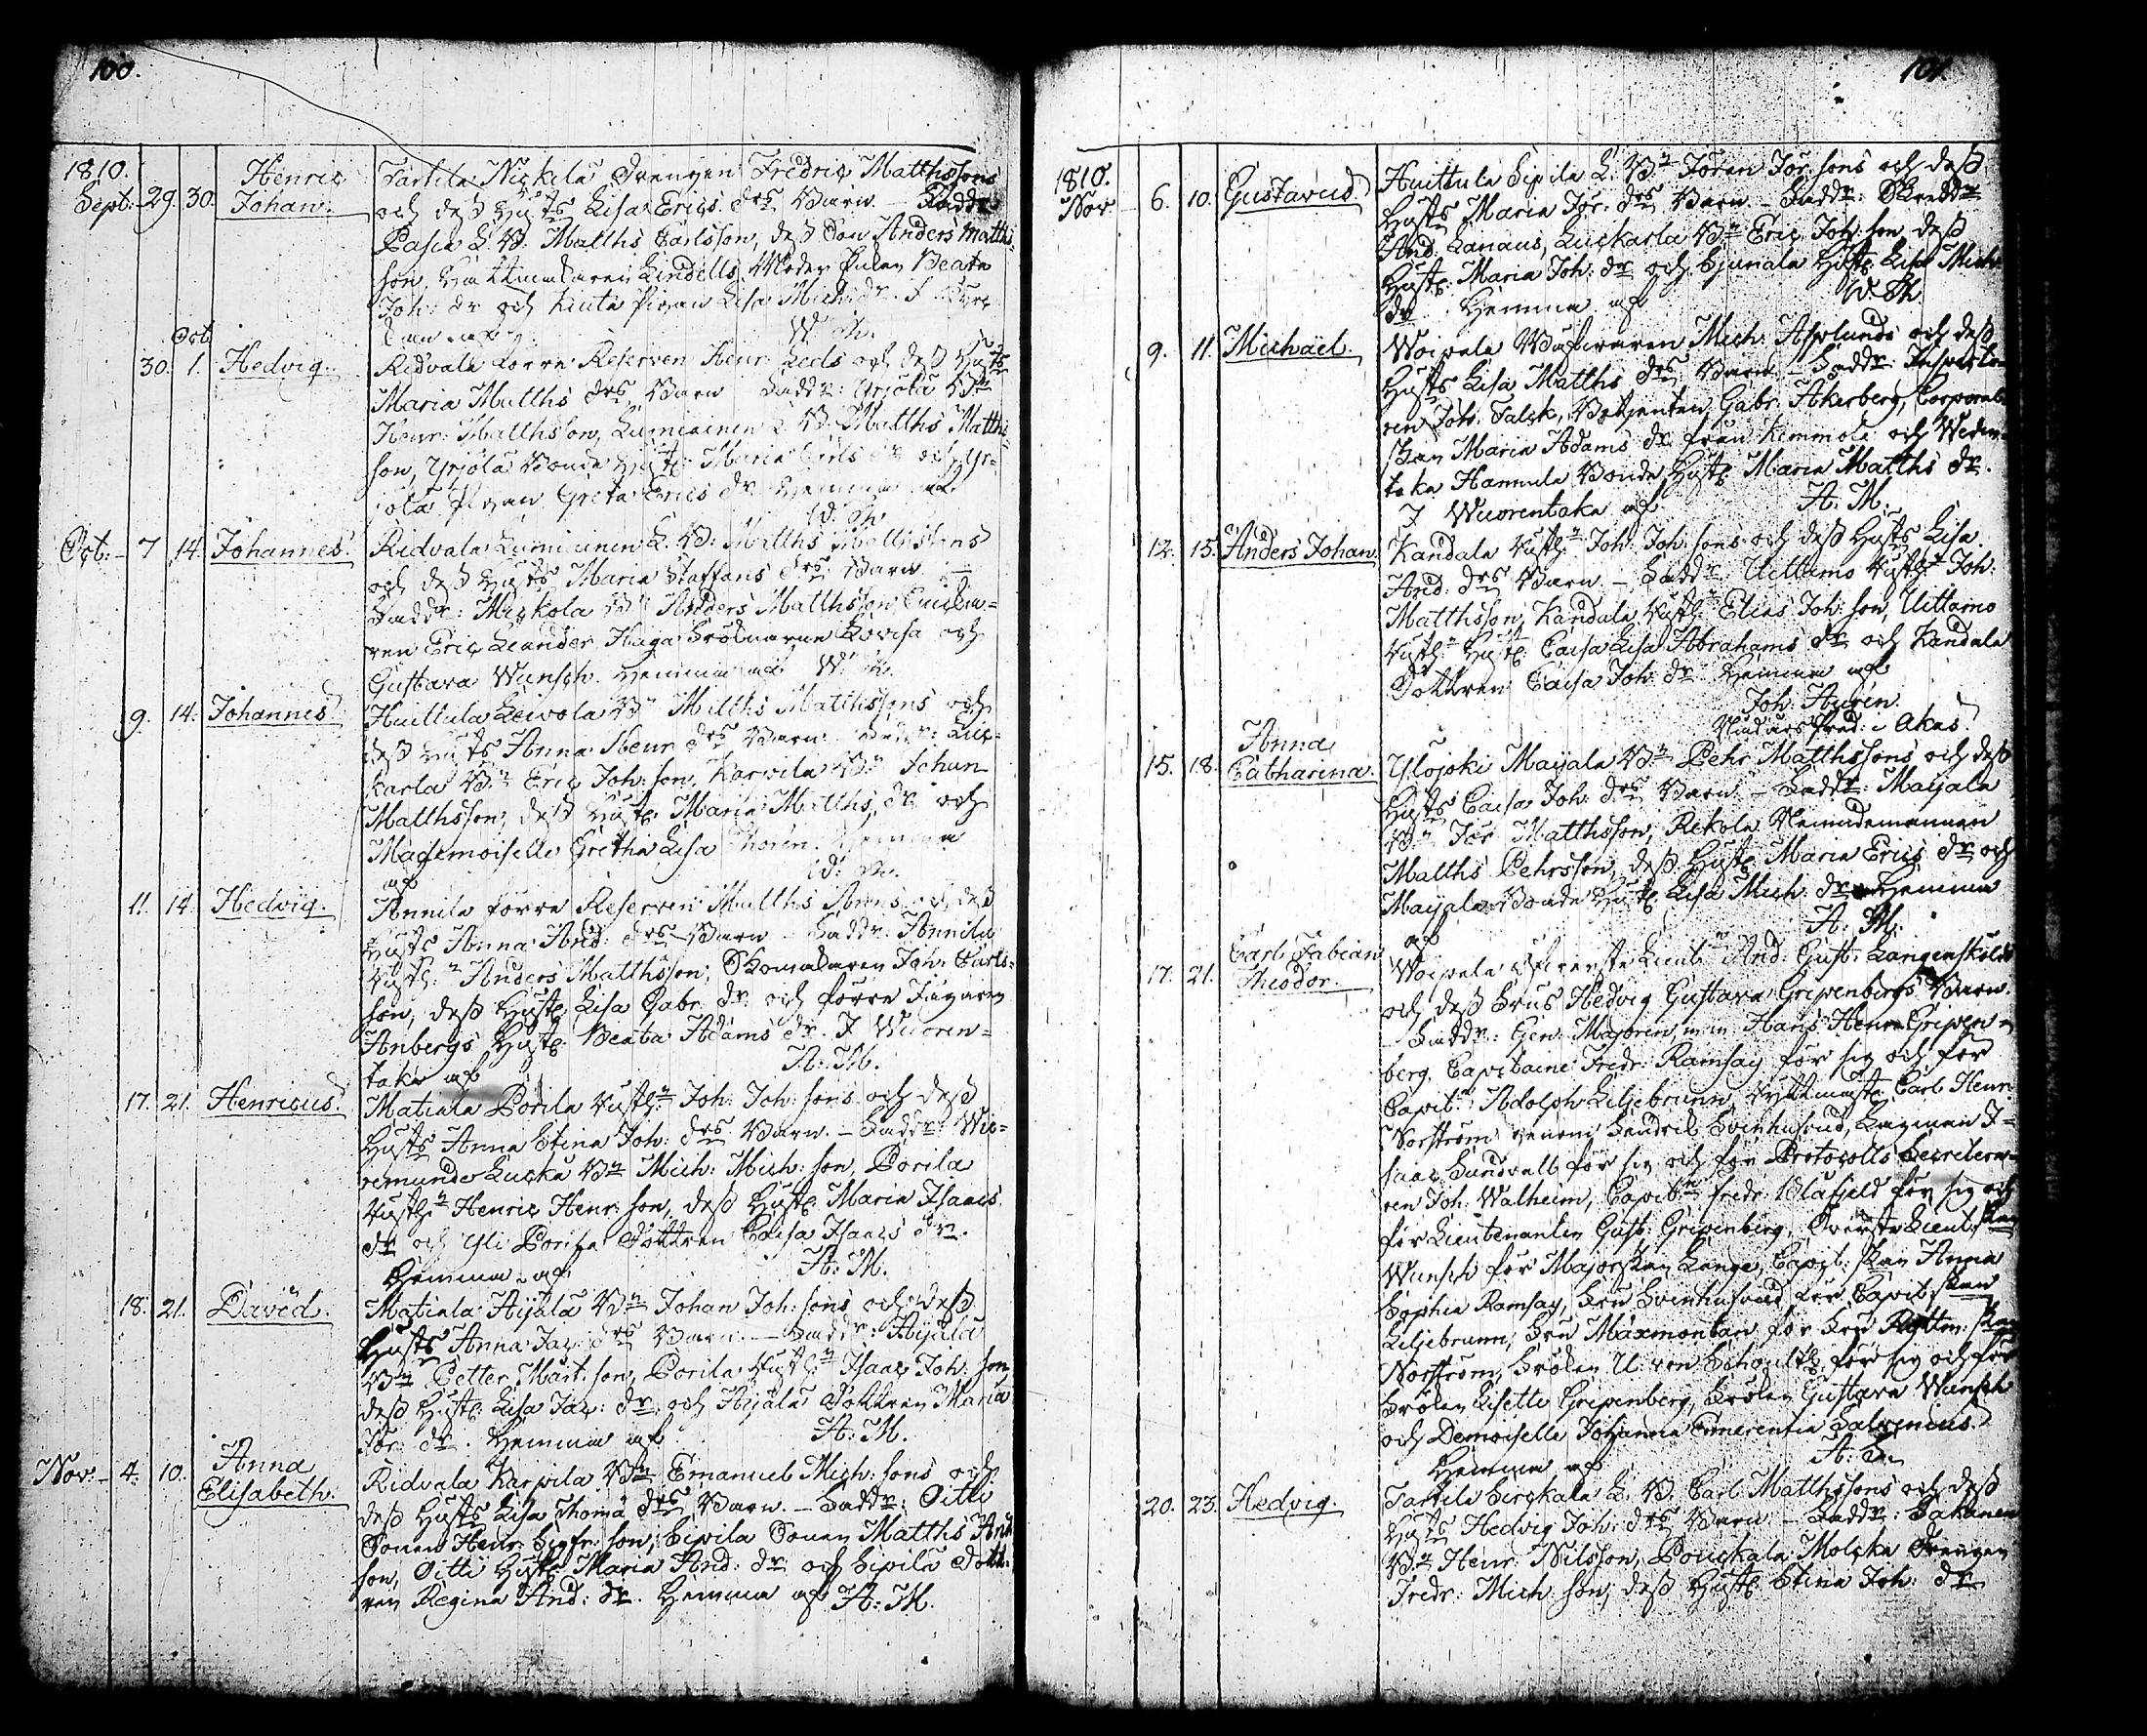 100.
1810.
Sept: 29. 30. Henric Johan.
Tarkila Nickila Drengen Fredric Matthssons
och dess Hust͟s Lisa Erics d͟r͟s Barn. – Fadd͟r
Pasia L. B: Matths Carlsson, dess Son Anders Matths
son, Hattmakaren Lindells Moder Enkan Beata
Joh: dr och Kuuta Pigan Lisa Mich: dr. I
W. Th.
Oct.
30. 1. Hedvig.
Ridvala förre Reserven Henr: Leels och dess Hust͟s
Maria Matths d͟r͟s Barn Fadd͟r: Yrjölä B͟n
Henr: Matthsson, Lumiainen L. B. Matths Matths
son, Yrjölä Bonde Hust: Maria Carls dr och Yr=
jölä Pigan Greta Erics dr. Hemma af
W. Th.
Oct: 7 14. Johannes.
Ridvala Lumiainen L. B: Matths Matthssons
och dess Hust͟s Maria Staffans d͟r͟s Barn. –
Fadd͟r: Mickola B͟n Anders Matthsson,
ren Eric Leander Haga Fröknarne Lovisa och
Gustava Wunsch. Hemma af W. Th.
9. 14. Johannes
Huittula Leivola B͟n Matths Matthssons och
dess Hust͟s Anna Henr: d͟r͟s Barn. Fadd͟r: Luc=
karla B͟n Eric Joh: son, Karvila B͟n Johan
Matthsson, dess Hust: Maria Matths dr och
Mademoiselle Gretha Lisa Thorén. Hemma
af W. Th.
11. 14. Hedvig.
Annila förre Reserven Matths Anns och dess
Hust͟s Anna And: d͟r͟s Barn – Fadd͟r: Annila
Kustf:͟n Anders Matthsson, Skomakaren Joh: Carls=
son, dess Hust: Lisa Gabr: dr. och förre Jägaren
Anbergs Hust: Beata Adams dr. I Wuoren=
taka af A: M.
17. 21. Henricus.
Matiala Porila Kustf:͟n Joh: Joh: sons och dess
Hust͟s Anna Stina Joh: d͟r͟s Barn. – Fadd͟r: Wie=
remunde Lucka B͟n Mich: Mich: son, Porila
Kustf:͟n Henric Henr: son, dess Hust: Maria Isaacs
dr och Yli Porila Dottren Caisa Isaacs dr.
Hemma af A: M.
18. 21. David.
Matiala Äijälä B͟n Johan Joh: sons och dess
Hust͟s Anna Jac: d͟r͟s Barn. – Fadd͟r: Äijälä
B͟n Petter Mårt: son, Porila Kustf:͟n Isaac Joh: son
dess Hust: Lisa Jac: dr: och Äijälä Dottren Maria
Jör: dr. Hemma af A: M.
Nov: 4. 10. Anna Elisabeth.
Ridvala Karvila B͟n Emanuel Mich: sons och
dess Hust͟s Lisa Thomä d͟r͟s Barn. – Fadd͟r: Oitti
Sonen Henr: Sigfr: son, Sipilä Sonen Matths And:
son, Oitti Hust: Maria And: dr och Sipilä Dott=
ren Regina And: dr. Hemma af A: M.
101.
1810.
Nov 6. 10. Gustavus
Huittula Sipilä L. B͟n Jöran Jör: sons och dess
Hust͟s Maria Jör: d͟r͟s Barn – Fadd͟r: Skredd͟r
And: Lanaus, Luckarla B͟n Eric Joh: son, dess
Hust: Maria Joh: dr och Sjunala Hust: Lisa Mich:
dr. Hemma af W. Th
9. 11. Michaël.
Woipala Mich: Asplunds och dess
Hust͟s Lisa Matths d͟r͟s Barn – Fadd͟r: Inspecto
ren Joh: Falck, Betjenten Gabr: Åkerberg, Corporal=
skan Maria Adams dr från Kimmola och Weden=
taka Hannula Bonde Hust: Maria Matths dr.
I Wuorentaka af A: M:
12. 15. Anders Johan.
Kandala Kustf:͟n Joh: Joh: sons och dess Hust͟s Lisa
And: d͟r͟s Barn – Fadd͟r: Uittamo Kustf:͟n Joh:
Matthsson, Kandala Kustf:͟n Elias Joh: son, Uittamo
Kustf:͟n Hust: Caisa Lisa Abrahams dr och Kandala
Dottren Caisa Joh: dr Hemma af
Joh: Aurén.
Nådårs Pred: i Akas.
15. 18. Anna Catharina.
Ylojoki Maijala B͟n Pehr Matthssons och dess
Hust͟s Caisa Joh: d͟r͟s Barn. – Fadd͟r: Maijala
B͟n Jör: Matthsson, Rekola Nemndemannen
Matths Pehrsson, dess Hust: Maria Erics dr och
Maijala Bonde Hust: Lisa Mich: dr. Hemma
af A: M:
17. 21. Carl Fabian Theodor.
Woipala Öfverste Lieut:͟n And: Gust: Langenskölds
och dess Frus Hedvig Gustava Gripenbergs Barn.
– Fadd͟r: Gen: Majoren m m Hans Henr: Gripen=
berg, Capitaine Fredr: Ramsay för sig och för
Capit:͟n Adolph Liljebrunn, Ryttmäst: Carl Henr:
Norström genom Fendrik Svinhufvud, Lagman I=
saac Sundvall för sig och för Protocolls Secretera=
ren Joh: Walheim, Capit:͟n Fredr: Blåfjeld för sig och
för Lieutenanten Gust: Gripenberg, Öfverste Lieut:skan
Wunsch för Majorskan Lange, Capit:skan Anna
Sophia Ramsay, Fru Svinhufvud för Capit:skan
Liljebrunn, Fru Maxmontan för Fru Ryttm:skan
Norström, Fröken U. von Schoultz för sig och för
Fröken Lisette Gripenberg, Fröken Gustava Wunsch
och Demoiselle Johanna Emerentia Salvenius.
Hemma af
20. 23. Hedvig.
Tarkila Sirckala L. B. Carl Matthssons och dess
Hust͟s Hedvig Joh: d͟r͟s Barn – Fadd͟r: Sakanen
B͟n Henr: Nilsson, Pouckala Molcka Drengen
Fredr: Mich: son, dess Hust: Stina Joh: dr